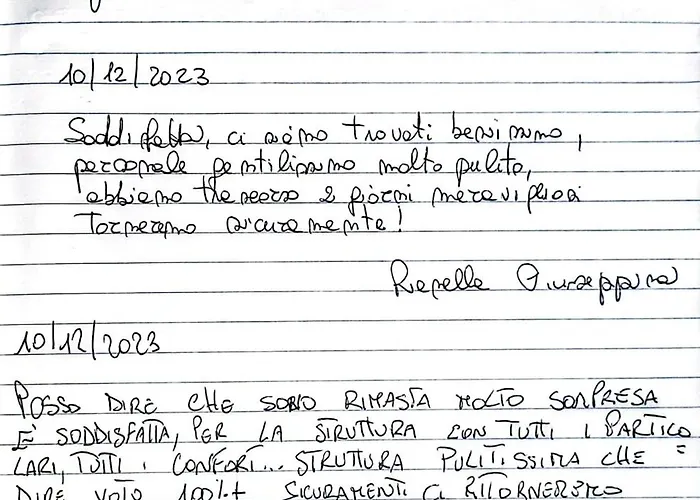 10/12/2023
Soddisfatta, ci siamo trovati benissimo,
personale gentilissimo molto pulito,
abbiamo 2 giorni meravigliosi
Torneremo sicuramente!
Giuseppina
10/12/2023
POSSO DIRE CHE SONO RIMASTA MOLTO SORPRESA
E SODDISFATTA, PER LA STRUTTURA CON TUTTI I PARTICO=
LARI, TUTTI I CONFORT... STRUTTURA PULITISSIMA CHE
DIRE VOTO 100%+ SICURAMENTE CI RITORNEREMO